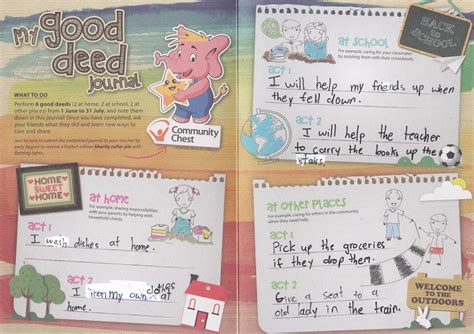 My
good
deed
journal
WHAT TO DO
Perform 6 good deeds (2 at home, 2 at school, 2 at
other places) from 1 June to 31 July, and note them
down in this journal! Once you have completed, ask
your friends what they did and learn new ways to
care and share.
Just be sure to submit the completed journal to your teacher by
early August to receive a limited edition Sharity collar pin with
flashing lights.
Community
Chest
HOME
SWEET
HOME
at home
For example, sharing responsibilities
with your parents by helping with
household chores.
act 1
I wash dishes at home.
act 2
I iron my own clothes at
home.
BACK
TO
SCHOOL
at school
For example, caring for your classmates
by assisting them with their schoolwork.
act 1
I will help my friends up when
they fell down.
act 2
I will help the teacher
to carry the books up the
stairs.
at other places
For example, caring for others in the community
when they need help.
act 1
Pick up the groceries
if they drop them.
act 2
Give a seat to a
old lady in the train.
WELCOME
TO THE
OUTDOORS